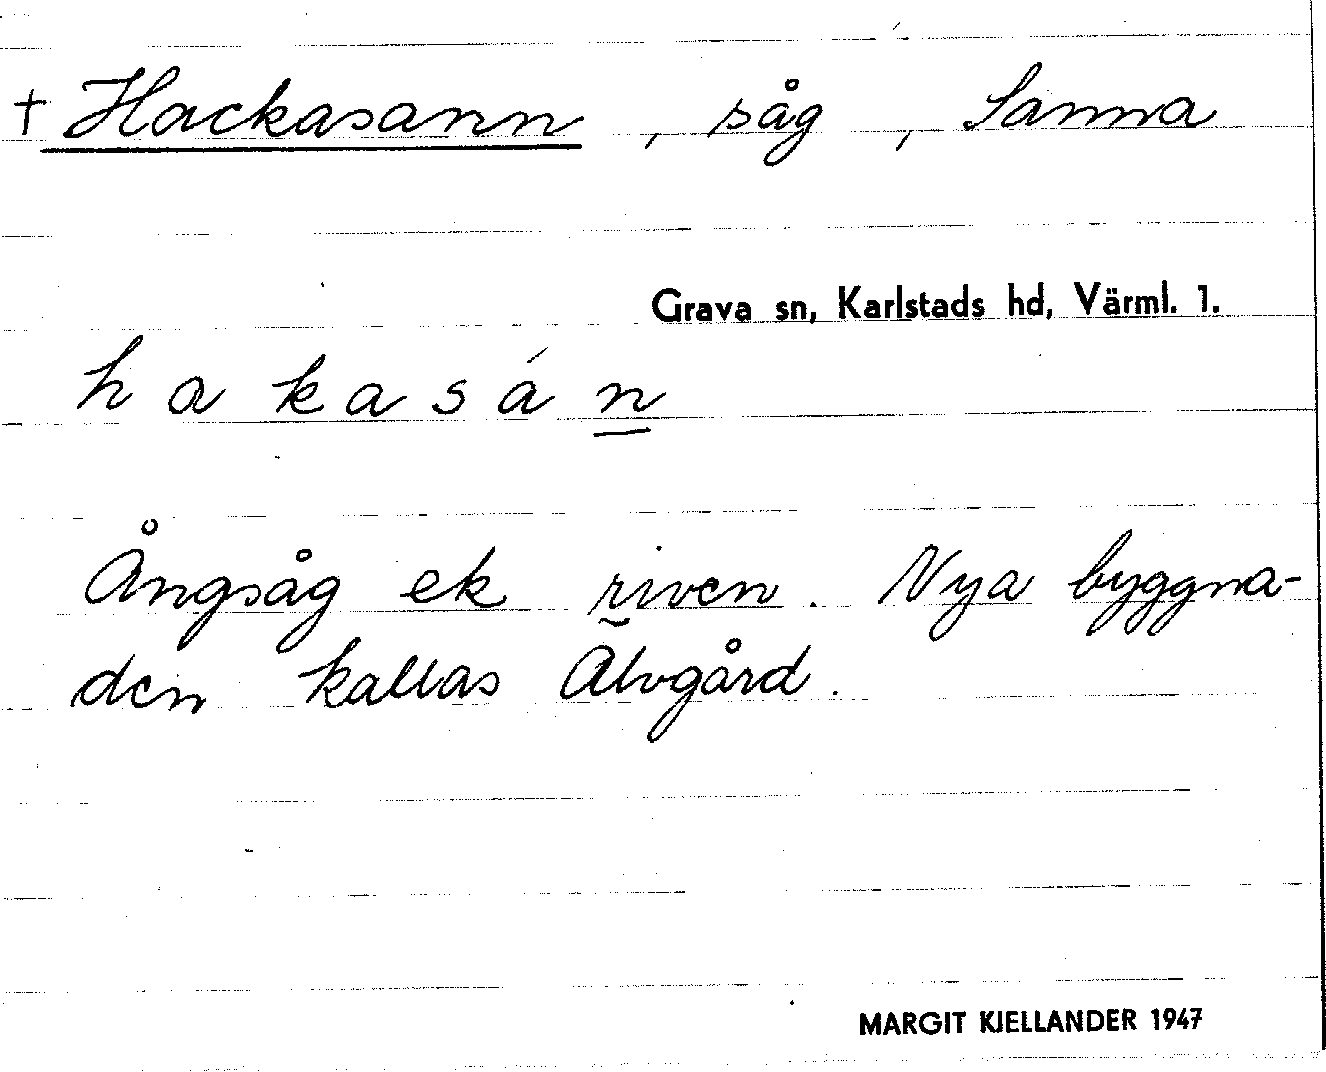 † Hackasann, såg, Sanna
Grava sn, Karlstads hd, Värml. 1.
h a k a s á n
Ångsåg ek riven. Nya byggna-
den kallas Älvgård.
MARGIT KJELLANDER 1947